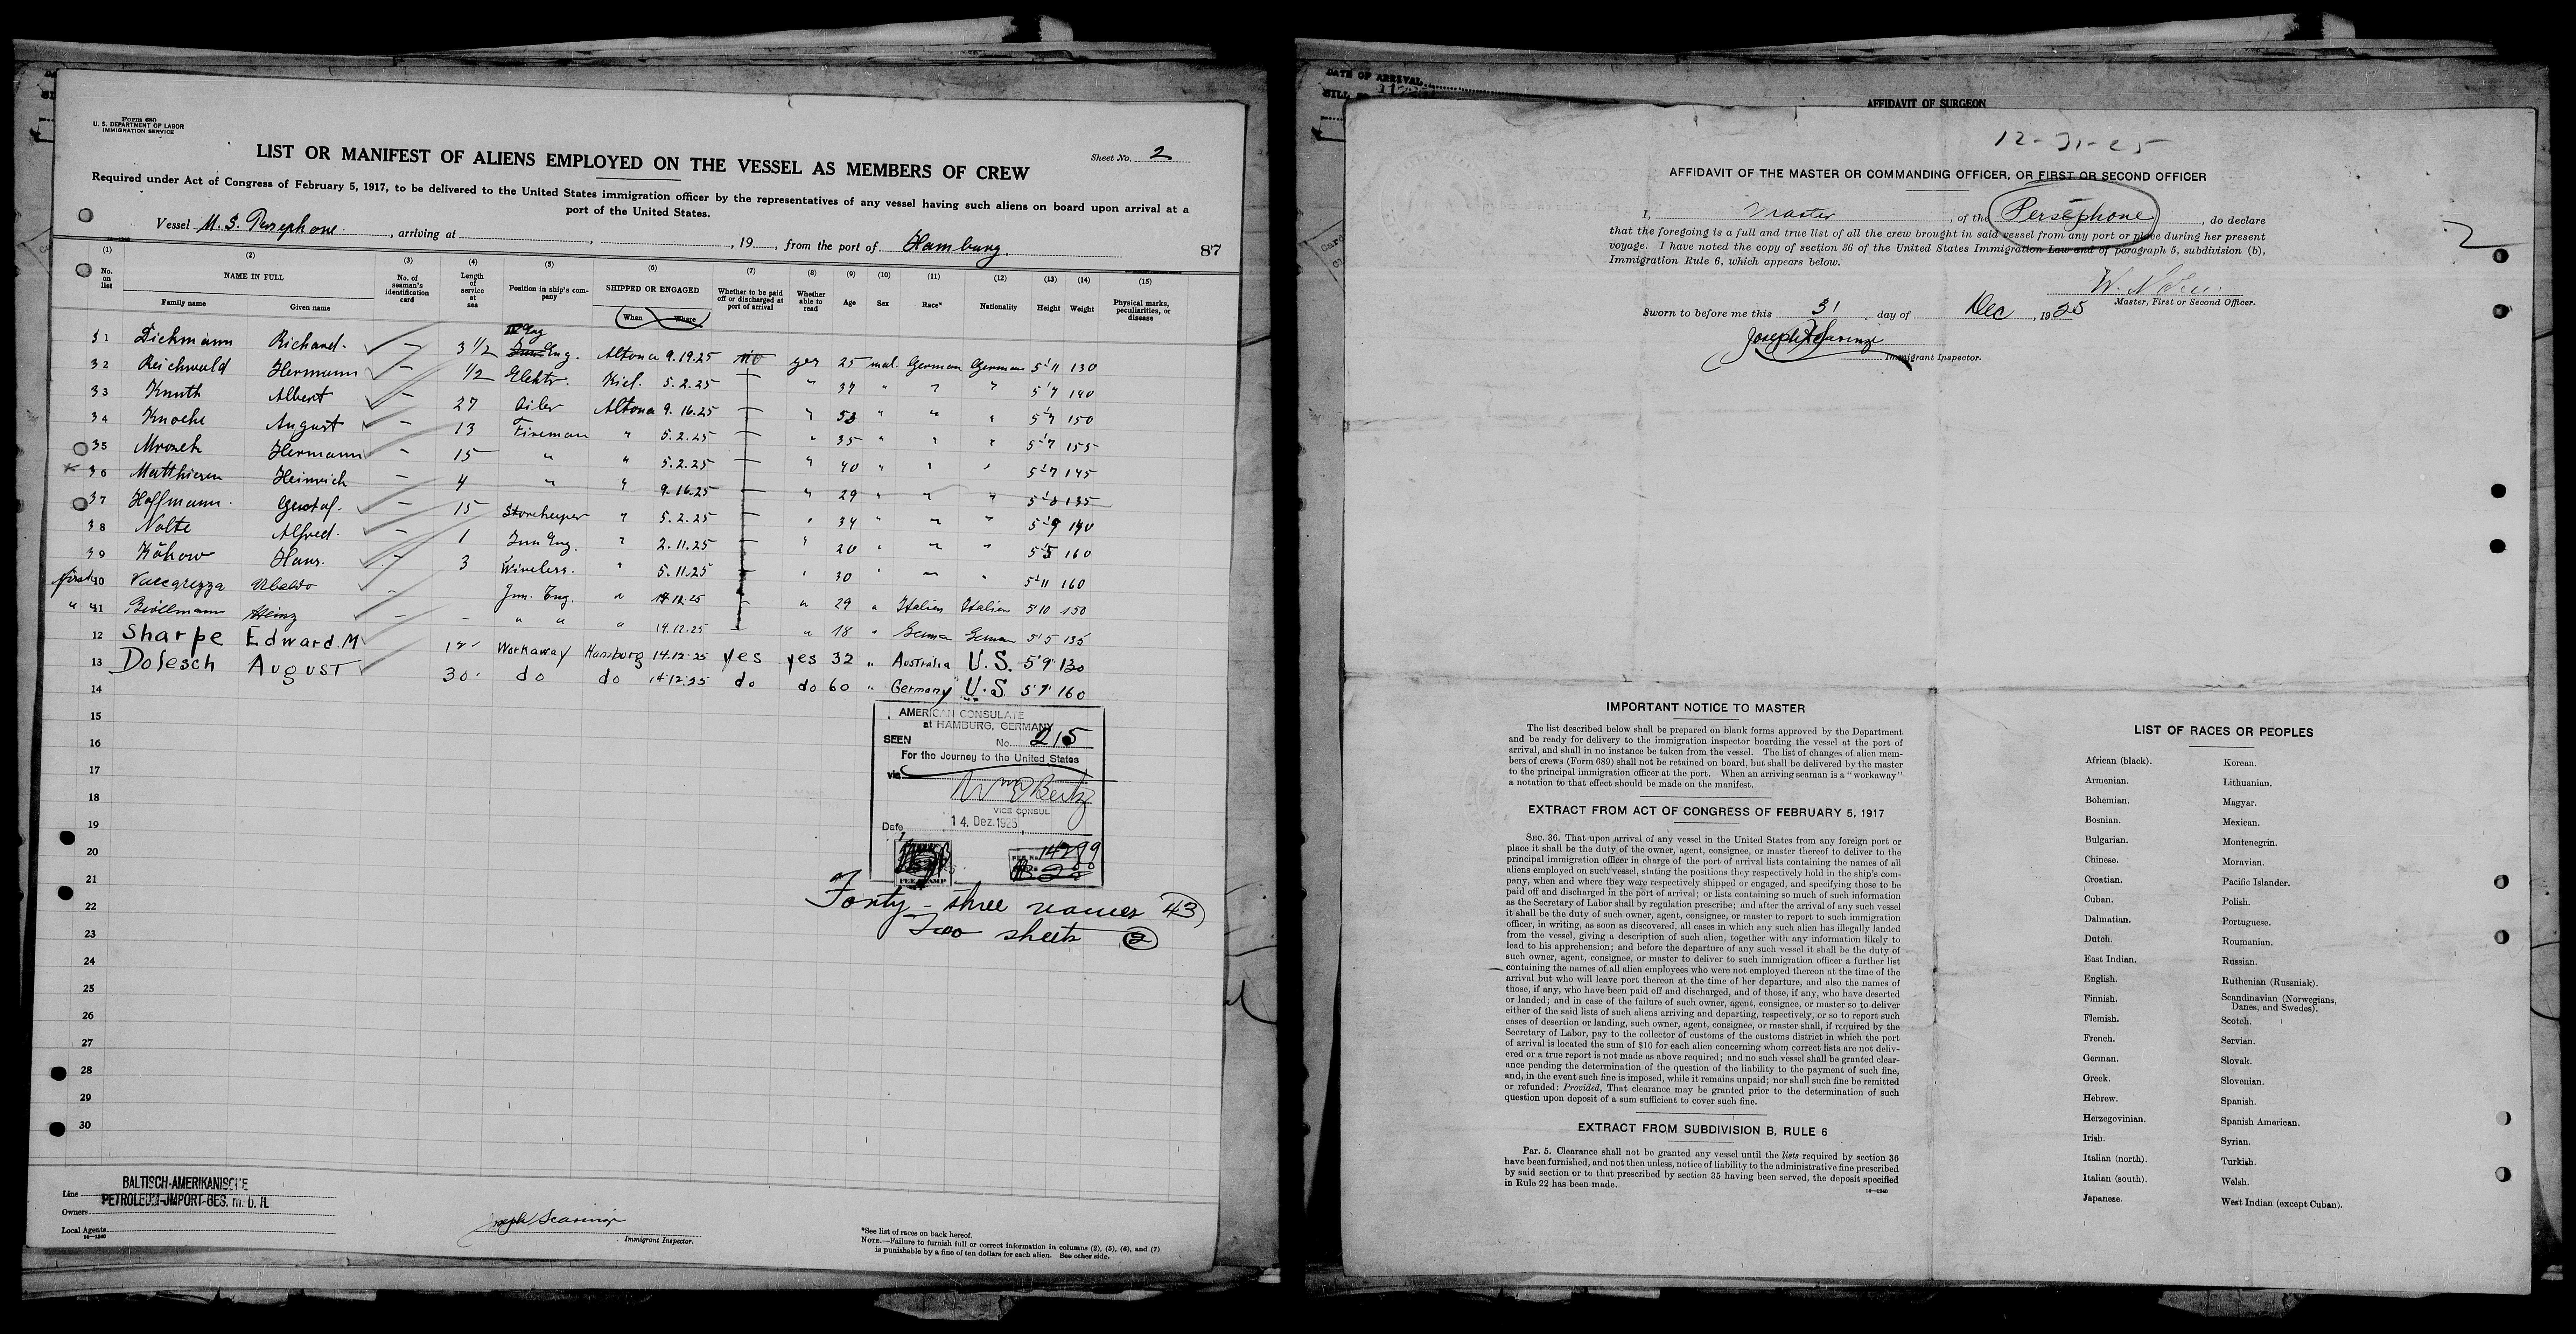 Form 680
U. S. DEPARTMENT OF LABOR
IMMIGRATION SERVICE
Sheet No. 2
LIST OR MANIFEST OF ALIENS EMPLOYED ON THE VESSEL AS MEMBERS OF CREW
Required under Act of Congress of February 5, 1917, to be delivered to the United States immigration officer by the representatives of any vessel having such aliens on board upon arrival at a
port of the United States.
Vessel M. S. Persephone, arriving at , , 19 , from the port of Hamburg.
87
(1) (2) (3) (4) (5) (6) (7) (8) (9) (10) (11) (12) (13) (14) (15)
No. on list NAME IN FULL Family name Given name No. of seaman's identification card Length of service at sea Position in ship's company SHIPPED OR ENGAGED When Where Whether to be paid off or discharged at port of arrival Whether able to read Age Sex Race* Nationality Height Weight Physical marks, peculiarities, or disease
31 Dickmann Richard. – 3 1/2 IV Eng Eng. Altona 9.19.25 no yes 25 mal. German German 5'11 130
32 Reichwald Hermann – 1/2 Elektr. Kiel. 5.2.25 — " 37 " " " 5'7 140
33 Knuth Albert – 27 Oiler Altona 9.16.25 — " 53 " " " 5'7 150
34 Knoche August – 13 Fireman " 5.2.25 — " 35 " " " 5'7 155
35 Mrozek Hermann – 15 " " 5.2.25 — " 40 " " " 5'7 145
36 Matthiesen Heinrich – 4 " " 9.16.25 — " 29 " " " 5'8 135
37 Hoffmann. Gustaf. – 15 Storekeeper " 5.2.25 — " 34 " " " 5'9 140
38 Nolte Alfred. – 1 Jun Eng. " 2.11.25 — " 20 " " " 5'5 160
39 Köhow Hans. – 3 Wireless. " 5.11.25 — " 30 " " " 5'11 160
first 40 Vaccarezza Ubaldo – Jun. Eng. " 14.12.25 — " 29 " Italien Italien 5'10 150
" 41 Bröllmann Heinz – – " " " 14.12.25 — " 18 " German German 5'5 135
12 Sharpe Edward. M 12 Workaway Hamburg 14.12.25 yes yes 32 " Australia U.S. 5'9 130
13 Dolesch August 30 do do 14.12.25 do do 60 " Germany U.S. 5'7 160
14
15
16
17
18
19
20
21
22
23
24
25
26
27
28
29
30
AMERICAN CONSULATE
at HAMBURG, GERMANY
SEEN No. 215
For the Journey to the United States
via
VICE CONSUL
Date 14. Dez. 1925
FEE STAMP
Forty-three names 43
Two sheets 2
Line BALTISCH-AMERIKANISCHE
Owners PETROLEUM-IMPORT-GES. m. b. H.
Local Agents
14—1240
Immigrant Inspector.
*See list of races on back hereof.
NOTE.—Failure to furnish full or correct information in columns (2), (5), (6), and (7)
is punishable by a fine of ten dollars for each alien. See other side.
DATE OF ARRIVAL
AFFIDAVIT OF SURGEON
12-31-25
AFFIDAVIT OF THE MASTER OR COMMANDING OFFICER, OR FIRST OR SECOND OFFICER
I, Master, of the Persephone, do declare
that the foregoing is a full and true list of all the crew brought in said vessel from any port or place during her present
voyage. I have noted the copy of section 36 of the United States Immigration Law and of paragraph 5, subdivision (b),
Immigration Rule 6, which appears below.
2
Master, First or Second Officer.
Sworn to before me this 31 day of Dec, 1925
Immigrant Inspector.
IMPORTANT NOTICE TO MASTER
The list described below shall be prepared on blank forms approved by the Department
and be ready for delivery to the immigration inspector boarding the vessel at the port of
arrival, and shall in no instance be taken from the vessel. The list of changes of alien mem-
bers of crews (Form 689) shall not be retained on board, but shall be delivered by the master
to the principal immigration officer at the port. When an arriving seaman is a "workaway"
a notation to that effect should be made on the manifest.
EXTRACT FROM ACT OF CONGRESS OF FEBRUARY 5, 1917
SEC. 36. That upon arrival of any vessel in the United States from any foreign port or
place it shall be the duty of the owner, agent, consignee, or master thereof to deliver to the
principal immigration officer in charge of the port of arrival lists containing the names of all
aliens employed on such vessel, stating the positions they respectively hold in the ship's com-
pany, when and where they were respectively shipped or engaged, and specifying those to be
paid off and discharged in the port of arrival; or lists containing so much of such information
as the Secretary of Labor shall by regulation prescribe; and after the arrival of any such vessel
it shall be the duty of such owner, agent, consignee, or master to report to such immigration
officer, in writing, as soon as discovered, all cases in which any such alien has illegally landed
from the vessel, giving a description of such alien, together with any information likely to
lead to his apprehension; and before the departure of any such vessel it shall be the duty of
such owner, agent, consignee, or master to deliver to such immigration officer a further list
containing the names of all alien employees who were not employed thereon at the time of the
arrival but who will leave port thereon at the time of her departure, and also the names of
those, if any, who have been paid off and discharged, and of those, if any, who have deserted
or landed; and in case of the failure of such owner, agent, consignee, or master so to deliver
either of the said lists of such aliens arriving and departing, respectively, or so to report such
cases of desertion or landing, such owner, agent, consignee, or master shall, if required by the
Secretary of Labor, pay to the collector of customs of the customs district in which the port
of arrival is located the sum of $10 for each alien concerning whom correct lists are not deliv-
ered or a true report is not made as above required; and no such vessel shall be granted clear-
ance pending the determination of the question of the liability to the payment of such fine,
and, in the event such fine is imposed, while it remains unpaid; nor shall such fine be remitted
or refunded: Provided, That clearance may be granted prior to the determination of such
question upon deposit of a sum sufficient to cover such fine.
EXTRACT FROM SUBDIVISION B, RULE 6
Par. 5. Clearance shall not be granted any vessel until the lists required by section 36
have been furnished, and not then unless, notice of liability to the administrative fine prescribed
by said section or to that prescribed by section 35 having been served, the deposit specified
in Rule 22 has been made.
14—1240
LIST OF RACES OR PEOPLES
African (black).
Armenian.
Bohemian.
Bosnian.
Bulgarian.
Chinese.
Croatian.
Cuban.
Dalmatian.
Dutch.
East Indian.
English.
Finnish.
Flemish.
French.
German.
Greek.
Hebrew.
Herzegovinian.
Irish.
Italian (north).
Italian (south).
Japanese.
Korean.
Lithuanian.
Magyar.
Mexican.
Montenegrin.
Moravian.
Pacific Islander.
Polish.
Portuguese.
Roumanian.
Russian.
Ruthenian (Russniak).
Scandinavian (Norwegians,
Danes, and Swedes).
Scotch.
Servian.
Slovak.
Slovenian.
Spanish.
Spanish American.
Syrian.
Turkish.
Welsh.
West Indian (except Cuban).